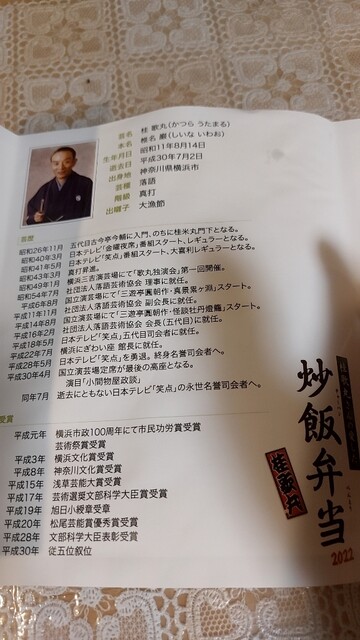 芸名 桂 歌丸(かつら うたまる)
本名 椎名 巌(しいな いわお)
生年月日 昭和11年8月14日
逝去日 平成30年7月2日
出身地 神奈川県横浜市
芸種 落語
階級 真打
出囃子 大漁節
芸歴
昭和26年11月 五代目古今亭今輔に入門、のちに桂米丸門下となる。
昭和40年3月 日本テレビ「金曜夜席」番組スタート、レギュラーとなる。
昭和41年5月 日本テレビ「笑点」番組スタート、大喜利レギュラーとなる。
昭和43年3月 真打昇進。
昭和49年1月 横浜三吉演芸場にて「歌丸独演会」第一回開催。
昭和54年7月 社団法人落語芸術協会 理事に就任。
平成6年8月 国立演芸場にて「三遊亭圓朝作・真景累ヶ淵」スタート。
平成11年11月 社団法人落語芸術協会 副会長に就任。
平成14年8月 国立演芸場にて「三遊亭圓朝作・怪談牡丹燈籠」スタート。
平成16年2月 社団法人落語芸術協会 会長(五代目)に就任。
平成18年5月 日本テレビ「笑点」五代目司会者に就任。
平成22年7月 横浜にぎわい座 館長に就任。
平成28年5月 日本テレビ「笑点」を勇退。終身名誉司会者へ。
平成30年4月 国立演芸場定席が最後の高座となる。
演目「小間物屋政談」
同年7月 逝去にともない日本テレビ「笑点」の永世名誉司会者へ。
受賞
平成元年 横浜市政100周年にて市民功労賞受賞
芸術祭賞受賞
平成3年 横浜文化賞受賞
平成8年 神奈川文化賞受賞
平成15年 浅草芸能大賞受賞
平成17年 芸術選奨文部科学大臣賞受賞
平成19年 旭日小綬章受章
平成20年 松尾芸能賞優秀賞受賞
平成28年 文部科学大臣表彰受賞
平成30年 従五位叙位
炒飯弁当
桂歌丸
2022